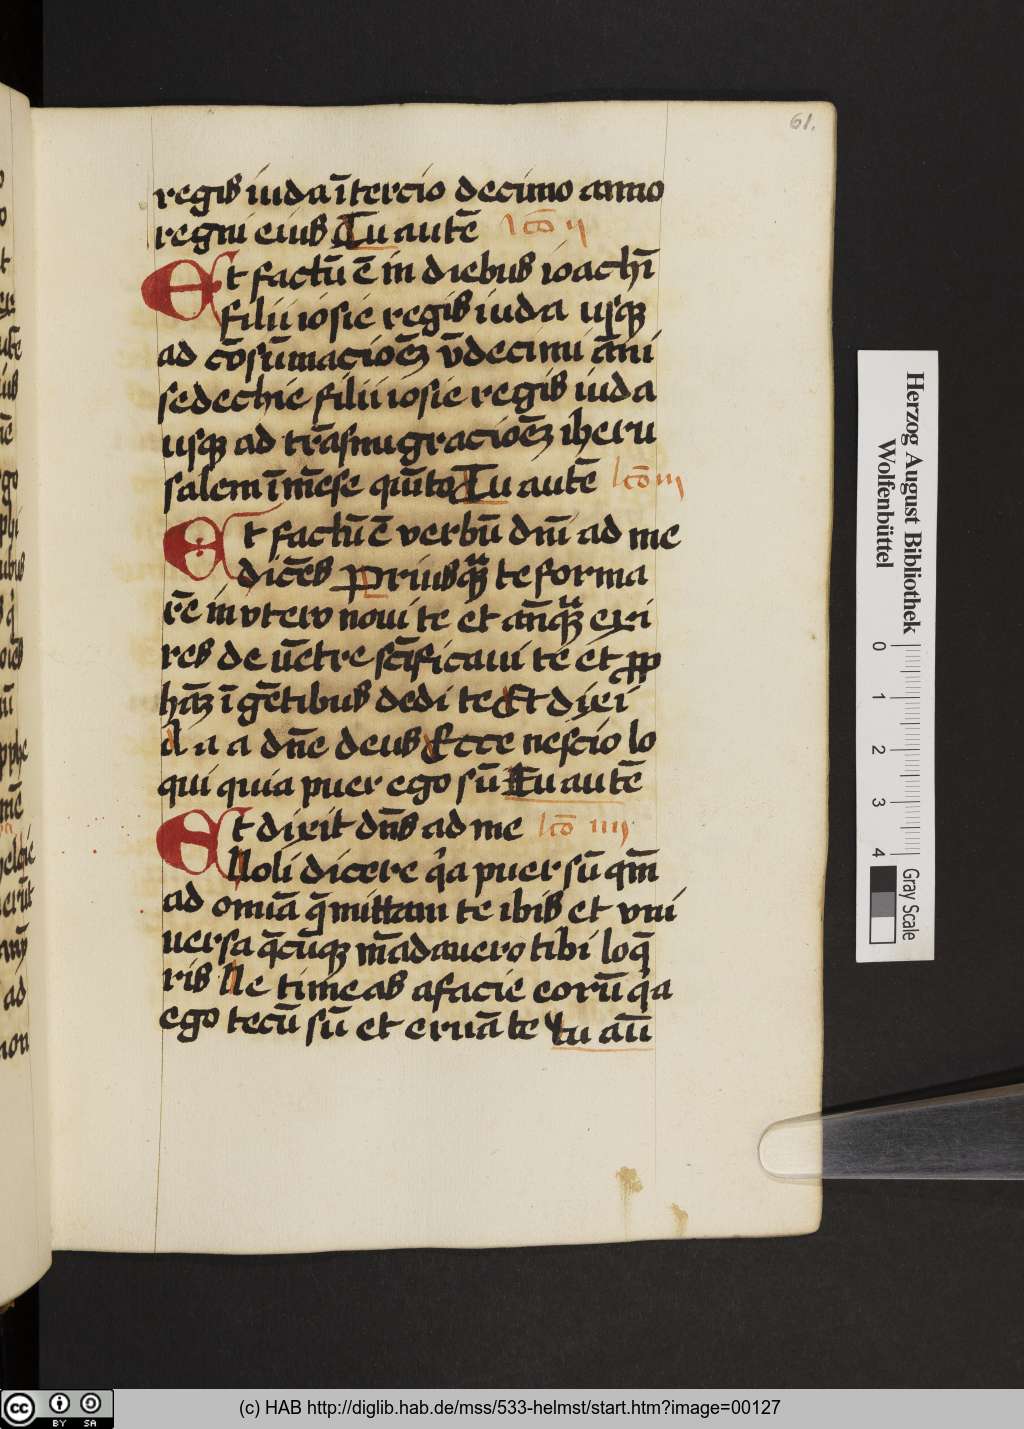 61.
regis iuda ī tercio decimo anno
regni eius Tu autē lcō ii
Et factū ē in diebus ioachī
filii iosie regis iuda usq
ad cōsūmacioēz ūdecimi āni
sedechie filii iosie regis iuda
usq ad trāsmigracioēz iheru
salem ī mēse quīto Tu autē lcō iii
Et factū ē verbū dnī ad me
dicēs Priusqz te forma
rē in vtero noui te et anqz exi
res de uētre scīficaui te et pp
hāz ī gētibus dedi te Et dixi
a a a dne deus Ecce nescio lo
qui quia puer ego sū Tu autē
Et dixit dns ad me lcō iiii
Noli dicere qa puer sū qm
ad omīa q mittam te ibis et vni
uersa qcūqz mādauero tibi loq
ris Ne timeas a facie eorū qa
ego tecū sū et eruā te Tu aū
Herzog August Bibliothek
Wolfenbüttel
0 1 2 3 4
Gray Scale
cc BY SA
(c) HAB http://diglib.hab.de/mss/533-helmst/start.htm?image=00127